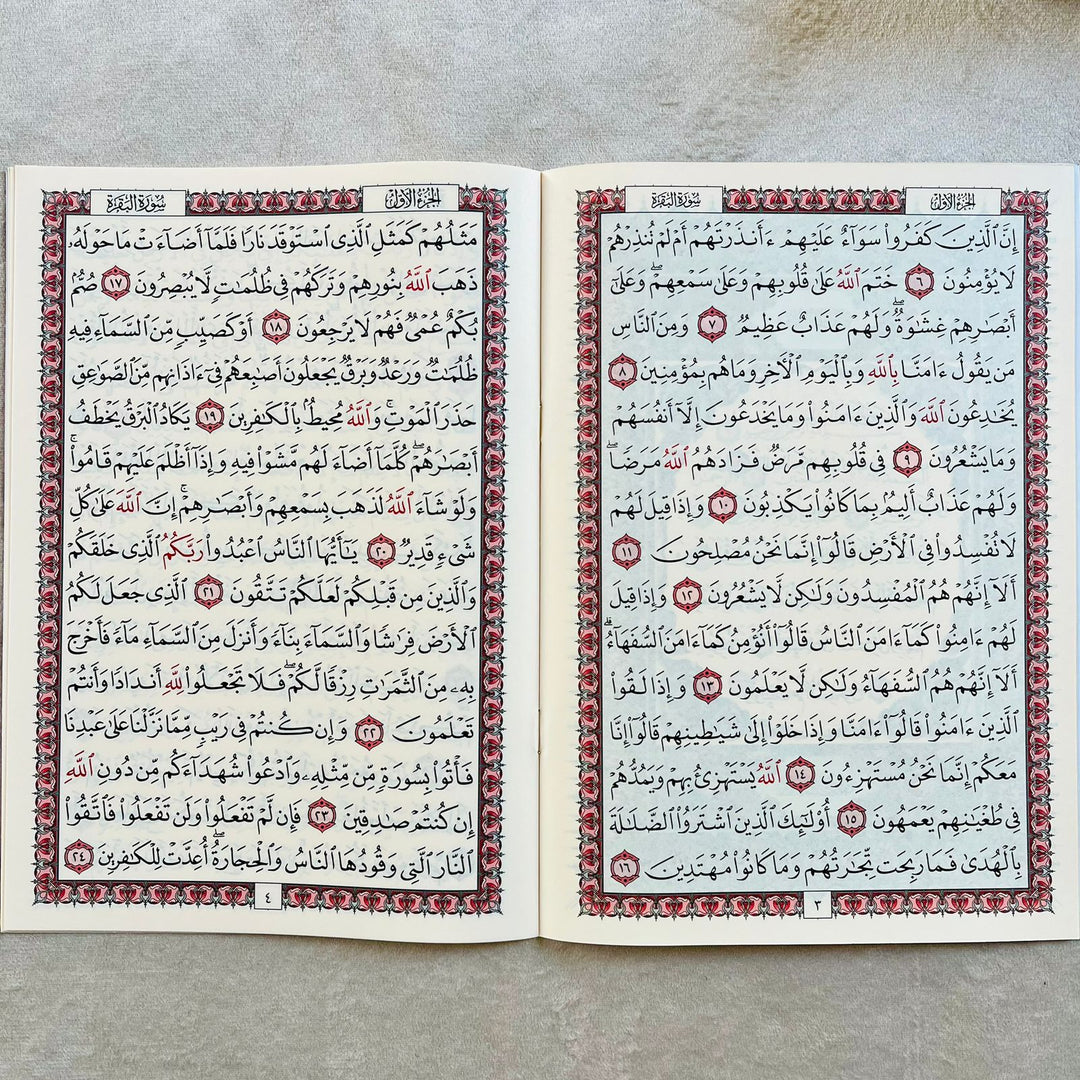 الجزء الأول
سورة البقرة
إِنَّ ٱلَّذِينَ كَفَرُوا۟ سَوَآءٌ عَلَيْهِمْ ءَأَنذَرْتَهُمْ أَمْ لَمْ تُنذِرْهُمْ
لَا يُؤْمِنُونَ ٦ خَتَمَ ٱللَّهُ عَلَىٰ قُلُوبِهِمْ وَعَلَىٰ سَمْعِهِمْ ۖ وَعَلَىٰٓ
أَبْصَـٰرِهِمْ غِشَـٰوَةٌ ۖ وَلَهُمْ عَذَابٌ عَظِيمٌ ٧ وَمِنَ ٱلنَّاسِ
مَن يَقُولُ ءَامَنَّا بِٱللَّهِ وَبِٱلْيَوْمِ ٱلْـَٔاخِرِ وَمَا هُم بِمُؤْمِنِينَ ٨
يُخَـٰدِعُونَ ٱللَّهَ وَٱلَّذِينَ ءَامَنُوا۟ وَمَا يَخْدَعُونَ إِلَّآ أَنفُسَهُمْ
وَمَا يَشْعُرُونَ ٩ فِى قُلُوبِهِم مَّرَضٌ فَزَادَهُمُ ٱللَّهُ مَرَضًا ۖ
وَلَهُمْ عَذَابٌ أَلِيمٌۢ بِمَا كَانُوا۟ يَكْذِبُونَ ١٠ وَإِذَا قِيلَ لَهُمْ
لَا تُفْسِدُوا۟ فِى ٱلْأَرْضِ قَالُوٓا۟ إِنَّمَا نَحْنُ مُصْلِحُونَ ١١
أَلَآ إِنَّهُمْ هُمُ ٱلْمُفْسِدُونَ وَلَـٰكِن لَّا يَشْعُرُونَ ١٢ وَإِذَا قِيلَ
لَهُمْ ءَامِنُوا۟ كَمَآ ءَامَنَ ٱلنَّاسُ قَالُوٓا۟ أَنُؤْمِنُ كَمَآ ءَامَنَ ٱلسُّفَهَآءُ ۗ
أَلَآ إِنَّهُمْ هُمُ ٱلسُّفَهَآءُ وَلَـٰكِن لَّا يَعْلَمُونَ ١٣ وَإِذَا لَقُوا۟
ٱلَّذِينَ ءَامَنُوا۟ قَالُوٓا۟ ءَامَنَّا وَإِذَا خَلَوْا۟ إِلَىٰ شَيَـٰطِينِهِمْ قَالُوٓا۟ إِنَّا
مَعَكُمْ إِنَّمَا نَحْنُ مُسْتَهْزِءُونَ ١٤ ٱللَّهُ يَسْتَهْزِئُ بِهِمْ وَيَمُدُّهُمْ
فِى طُغْيَـٰنِهِمْ يَعْمَهُونَ ١٥ أُو۟لَـٰٓئِكَ ٱلَّذِينَ ٱشْتَرَوُا۟ ٱلضَّلَـٰلَةَ
بِٱلْهُدَىٰ فَمَا رَبِحَت تِّجَـٰرَتُهُمْ وَمَا كَانُوا۟ مُهْتَدِينَ ١٦
٣
الجزء الأول
سورة البقرة
مَثَلُهُمْ كَمَثَلِ ٱلَّذِى ٱسْتَوْقَدَ نَارًا فَلَمَّآ أَضَآءَتْ مَا حَوْلَهُۥ
ذَهَبَ ٱللَّهُ بِنُورِهِمْ وَتَرَكَهُمْ فِى ظُلُمَـٰتٍ لَّا يُبْصِرُونَ ١٧ صُمٌّۢ
بُكْمٌ عُمْىٌ فَهُمْ لَا يَرْجِعُونَ ١٨ أَوْ كَصَيِّبٍ مِّنَ ٱلسَّمَآءِ فِيهِ
ظُلُمَـٰتٌ وَرَعْدٌ وَبَرْقٌ يَجْعَلُونَ أَصَـٰبِعَهُمْ فِىٓ ءَاذَانِهِم مِّنَ ٱلصَّوَٰعِقِ
حَذَرَ ٱلْمَوْتِ ۚ وَٱللَّهُ مُحِيطٌۢ بِٱلْكَـٰفِرِينَ ١٩ يَكَادُ ٱلْبَرْقُ يَخْطَفُ
أَبْصَـٰرَهُمْ ۖ كُلَّمَآ أَضَآءَ لَهُم مَّشَوْا۟ فِيهِ وَإِذَآ أَظْلَمَ عَلَيْهِمْ قَامُوا۟ ۚ
وَلَوْ شَآءَ ٱللَّهُ لَذَهَبَ بِسَمْعِهِمْ وَأَبْصَـٰرِهِمْ ۚ إِنَّ ٱللَّهَ عَلَىٰ كُلِّ
شَىْءٍ قَدِيرٌ ٢٠ يَـٰٓأَيُّهَا ٱلنَّاسُ ٱعْبُدُوا۟ رَبَّكُمُ ٱلَّذِى خَلَقَكُمْ
وَٱلَّذِينَ مِن قَبْلِكُمْ لَعَلَّكُمْ تَتَّقُونَ ٢١ ٱلَّذِى جَعَلَ لَكُمُ
ٱلْأَرْضَ فِرَٰشًا وَٱلسَّمَآءَ بِنَآءً وَأَنزَلَ مِنَ ٱلسَّمَآءِ مَآءً فَأَخْرَجَ
بِهِۦ مِنَ ٱلثَّمَرَٰتِ رِزْقًا لَّكُمْ ۖ فَلَا تَجْعَلُوا۟ لِلَّهِ أَندَادًا وَأَنتُمْ
تَعْلَمُونَ ٢٢ وَإِن كُنتُمْ فِى رَيْبٍ مِّمَّا نَزَّلْنَا عَلَىٰ عَبْدِنَا
فَأْتُوا۟ بِسُورَةٍ مِّن مِّثْلِهِۦ وَٱدْعُوا۟ شُهَدَآءَكُم مِّن دُونِ ٱللَّهِ
إِن كُنتُمْ صَـٰدِقِينَ ٢٣ فَإِن لَّمْ تَفْعَلُوا۟ وَلَن تَفْعَلُوا۟ فَٱتَّقُوا۟
ٱلنَّارَ ٱلَّتِى وَقُودُهَا ٱلنَّاسُ وَٱلْحِجَارَةُ ۖ أُعِدَّتْ لِلْكَـٰفِرِينَ ٢٤
٤